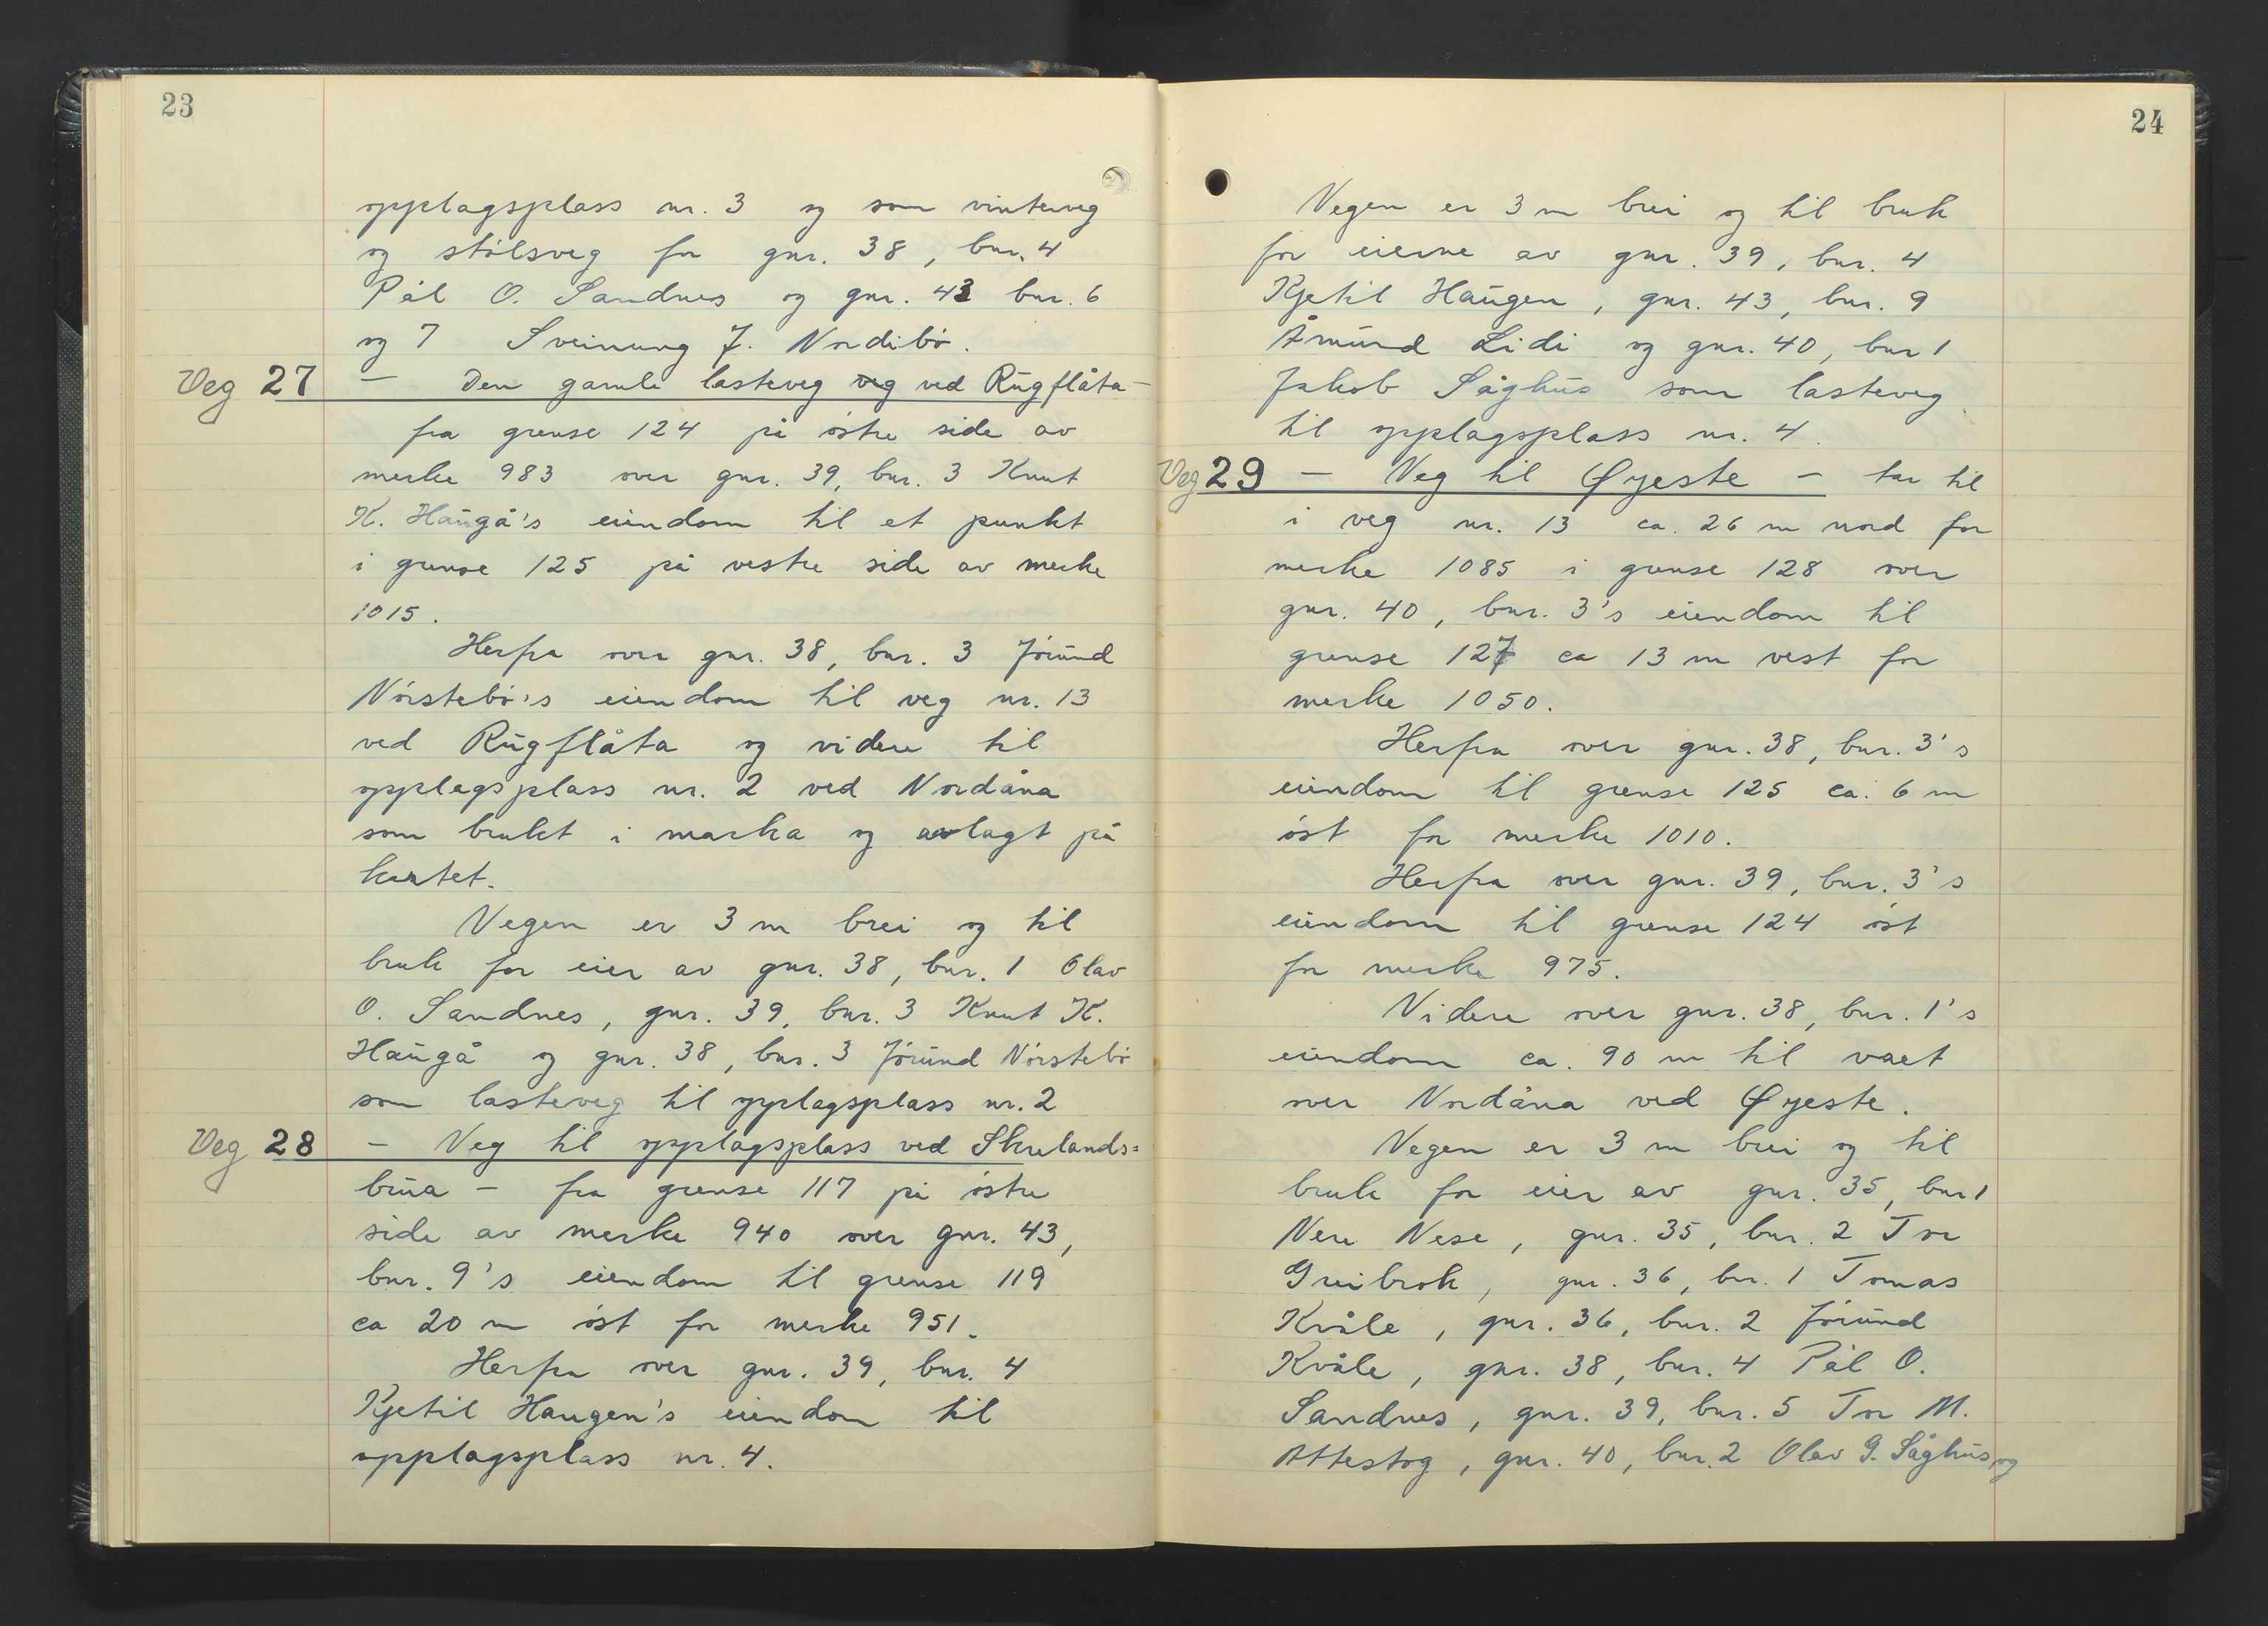 23
opplagsplass nr. 3 og som vinterveg
og stølsveg for gnr. 38, bnr. 4
Pål O. Sandnes og gnr. 43 bnr. 6
og 7 Sveinung J. Nordibø.
Veg 27 — Den gamle lasteveg veg ved Rugflåta —
fra grense 124 på østre side av
merke 983 over gnr. 39, bnr. 3 Knut
K. Haugå's eiendom til et punkt
i grense 125 på vestre side av merke
1015.
Herfra over gnr. 38, bnr. 3 Jórund
Nørstebø's eiendom til veg nr. 13
ved Rugflåta og videre til
opplagsplass nr. 2 ved Nordåna
som brukt i marka og avlagt på
kartet.
Vegen er 3 m brei og til
bruk for eier av gnr. 38, bnr. 1 Olav
O. Sandnes, gnr. 39, bnr. 3 Knut K.
Haugå og gnr. 38, bnr. 3 Jórund Nørstebø
som lasteveg til opplagsplass nr. 2
Veg 28 — Veg til opplagsplass ved Skrelands=
brua — fra grense 117 på østre
side av merke 940 over gnr. 43,
bnr. 9's eiendom til grense 119
ca 20 m øst for merke 951.
Herfra over gnr. 39, bnr. 4
Kjetil Haugen's eiendom til
opplagsplass nr. 4.
24
Vegen er 3 m brei og til bruk
for eierne av gnr. 39, bnr. 4
Kjetil Haugen, gnr. 43, bnr. 9
Åmund Lidi og gnr. 40, bnr 1
Jakob Såghus som lasteveg
til opplagsplass nr. 4.
Veg 29 — Veg til Øyeste — tar til
i veg nr. 13 ca. 26 m nord for
merke 1085 i grense 128 over
gnr. 40, bnr. 3's eiendom til
grense 127 ca 13 m vest for
merke 1050.
Herfra over gnr. 38, bnr. 3's
eiendom til grense 125 ca. 6 m
øst for merke 1010.
Herfra over gnr. 39, bnr. 3's
eiendom til grense 124 øst
for merke 975.
Videre over gnr. 38, bnr. 1's
eiendom ca. 90 m til vaet
over Nordåna ved Øyeste.
Vegen er 3 m brei og til
bruk for eier av gnr. 35, bnr 1
Nere Nese, gnr. 35, bnr. 2 Tor
Greibrok, gnr. 36, bnr. 1 Tomas
Kvåle, gnr. 36, bnr. 2 Jórund
Kvåle, gnr. 38, bnr. 4 Pål O.
Sandnes, gnr. 39, bnr. 5 Tor M.
Attestog, gnr. 40, bnr. 2 Olav G. Såghus og